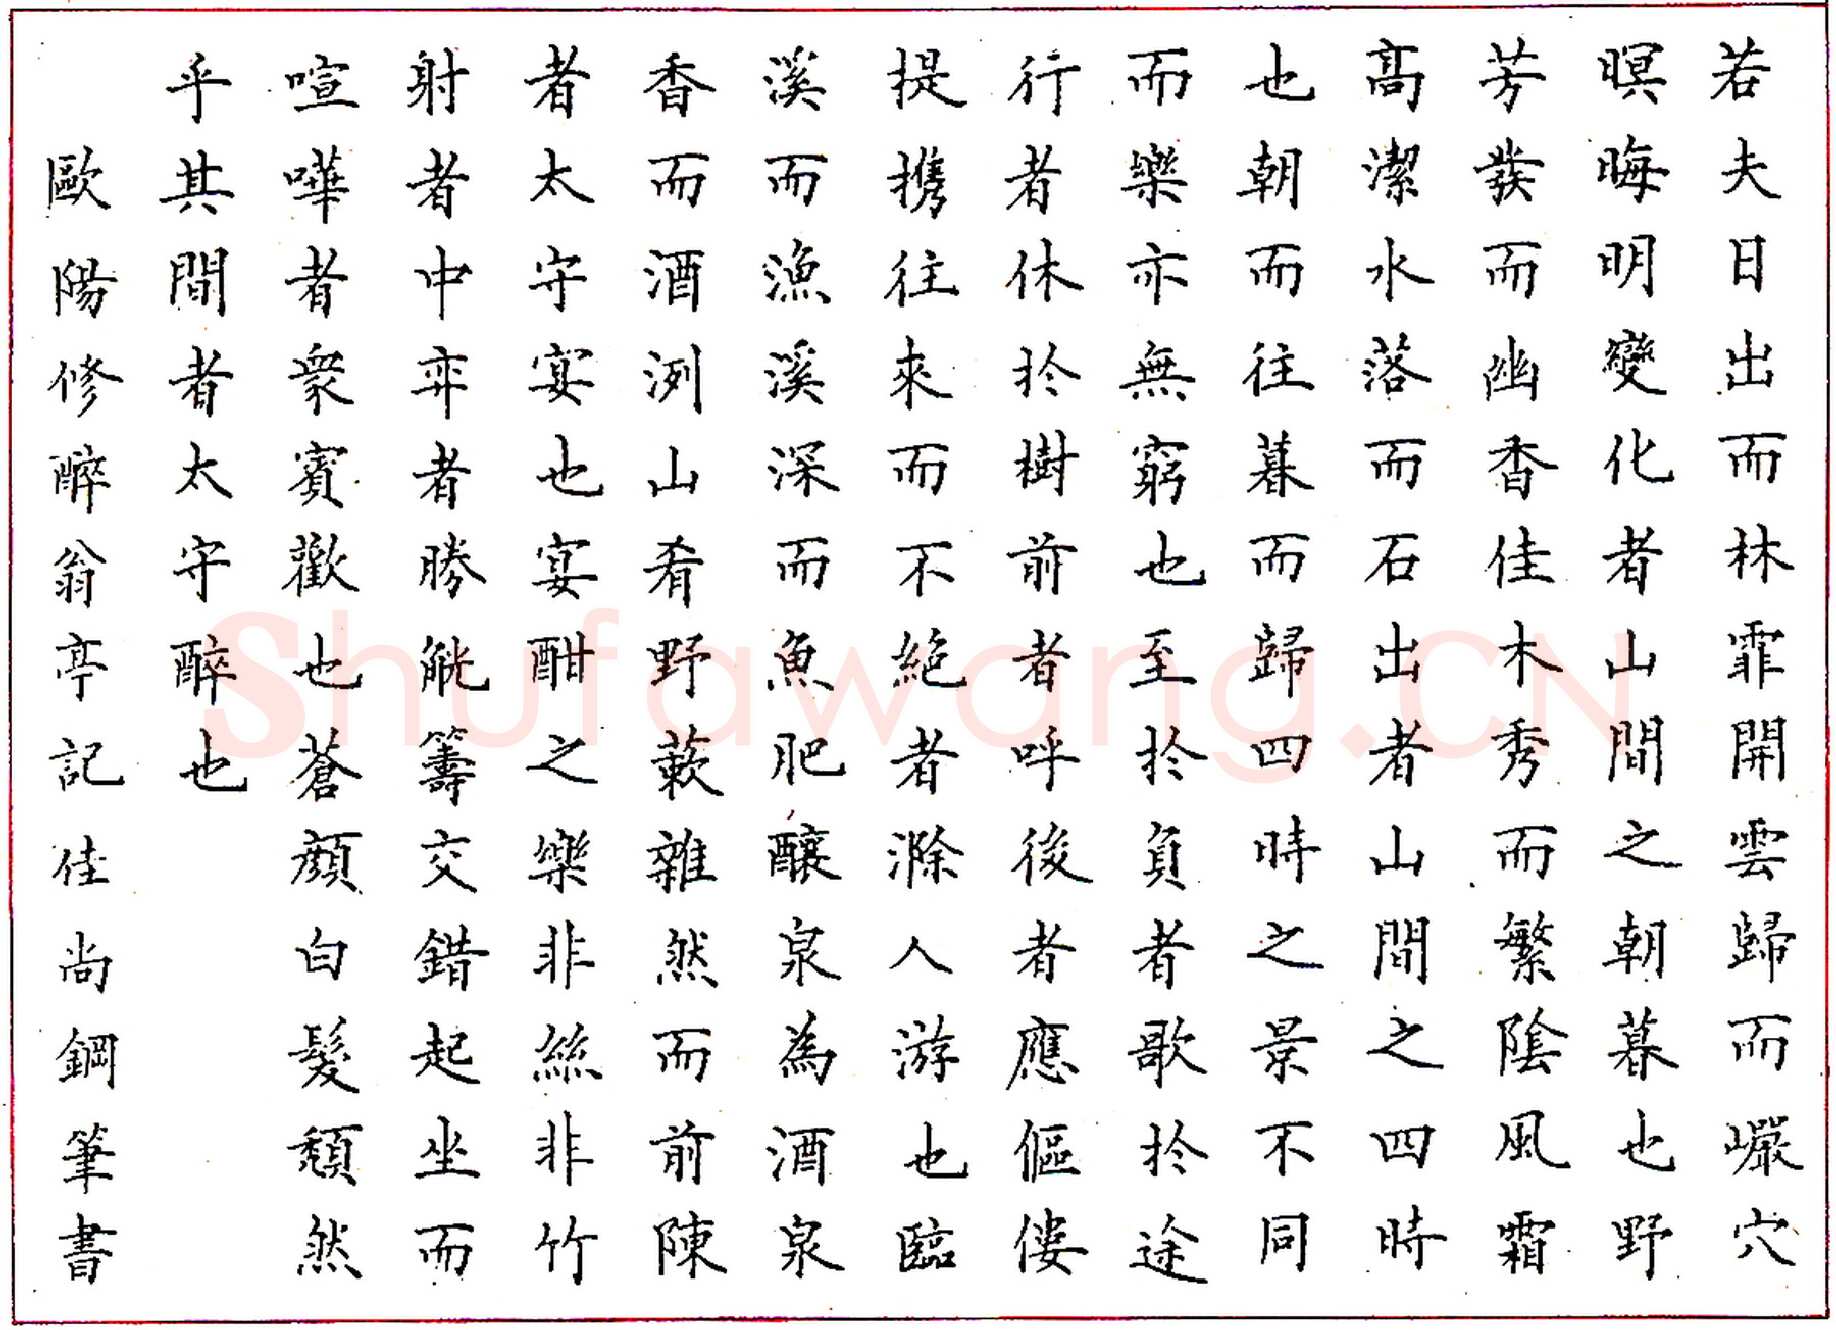 若夫日出而林霏開雲歸而巖穴
暝晦明變化者山間之朝暮也野
芳發而幽香佳木秀而繁陰風霜
高潔水落而石出者山間之四時
也朝而往暮而歸四時之景不同
而樂亦無窮也至於負者歌於途
行者休於樹前者呼後者應傴僂
提携往來而不絕者滁人游也臨
溪而漁溪深而魚肥釀泉為酒泉
香而酒洌山肴野蔌雜然而前陳
者太守宴也宴酣之樂非絲非竹
射者中弈者勝觥籌交錯起坐而
喧嘩者眾賓歡也蒼顏白髮頹然
乎其間者太守醉也
歐陽修醉翁亭記佳尚鋼筆書
Shufawang.CN